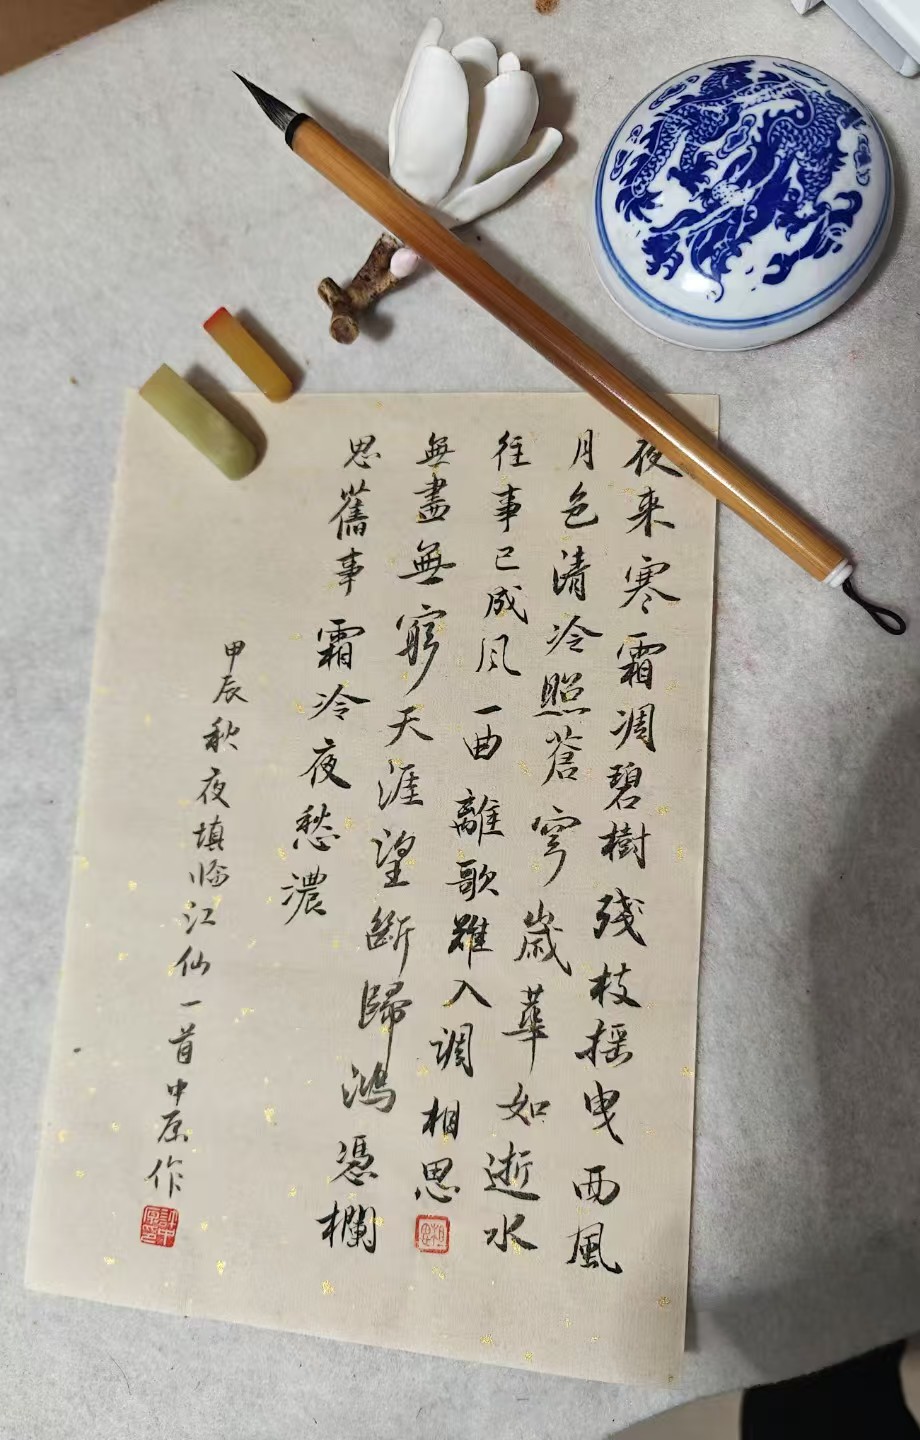 夜来寒霜凋碧樹殘枝揺曳西風
月色清冷照蒼穹歲華如逝水
往事已成风一曲離歌難入調相思
無盡無窮天涯望斷歸鴻憑欄
思舊事霜冷夜愁濃
甲辰秋夜填临江仙一首中原作